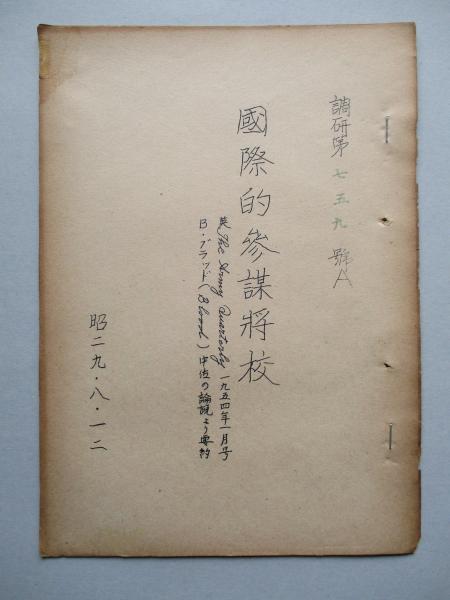 調研第七五九號A
國際的参謀將校
英 The Army Quarterly 一九五四年一月号
B・ブラッド(Blood)中佐の論説より要約
昭二九・八・一二